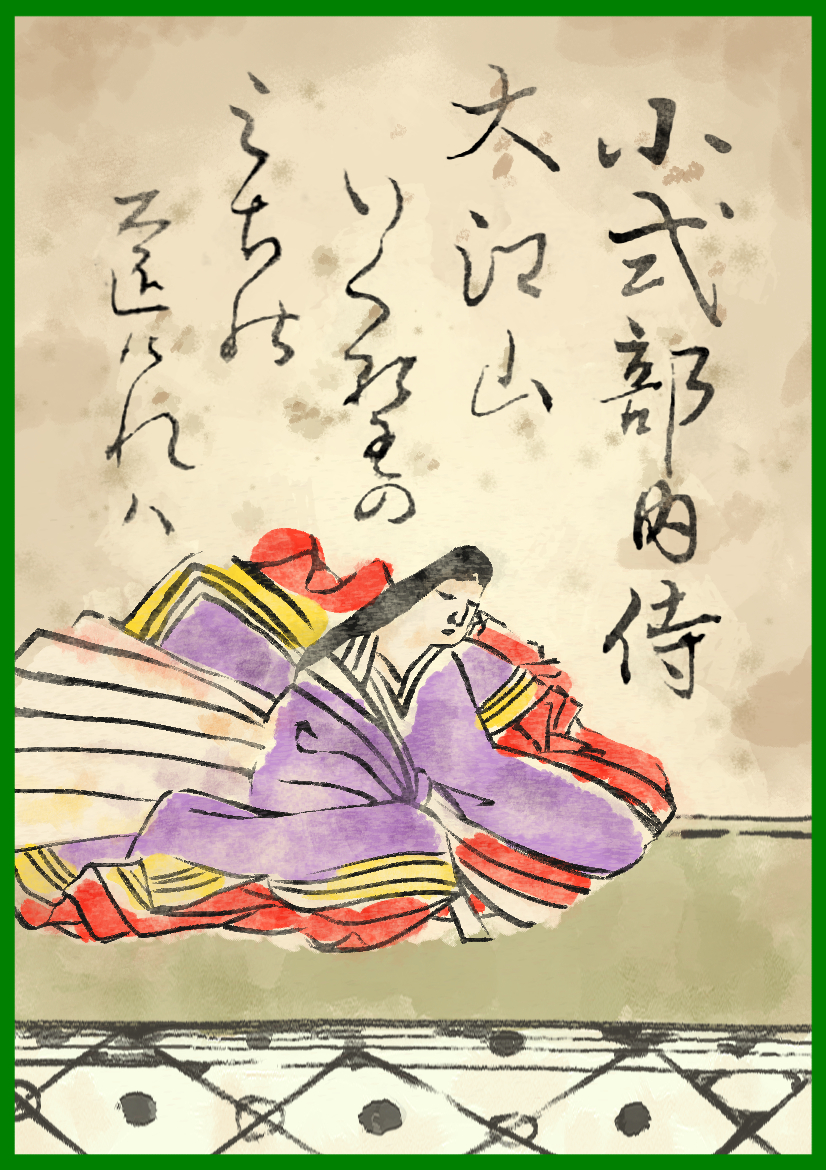 小式部内侍
大江山
いく埜の
みち能
遠けれハ